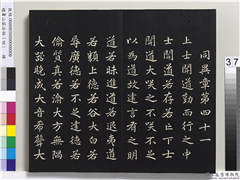 同異章第四十一
上士聞道勤而行之中
士聞道若存若亡下士
聞道大笑之不笑不足
以為道故建言有之明
道若昧進道若退夷道
若類上德若谷大白若
辱廣德若不足建德若
偷質真若渝大方無隅
大器晚成大音希聲大
37